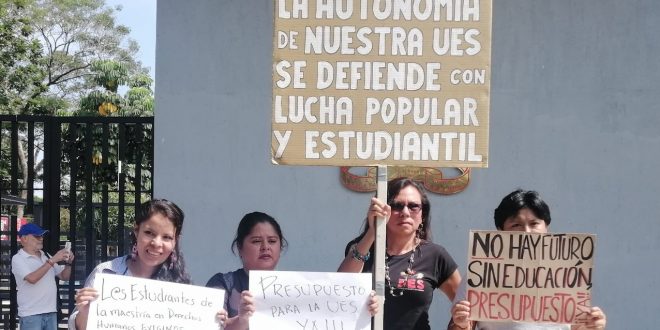 LA AUTONOMIA
DE NUESTRA UES
SE DEFIENDE CON
LUCHA POPULAR
Y ESTUDIANTIL
Les Estudiantes de
la maestría en Derechos
Humanos EXIGIMOS
PRESUPUESTO
PARA LA UES
YA!!!
NO HAY FUTURO
SIN EDUCACIÓN
PRESUPUESTO
YA!!